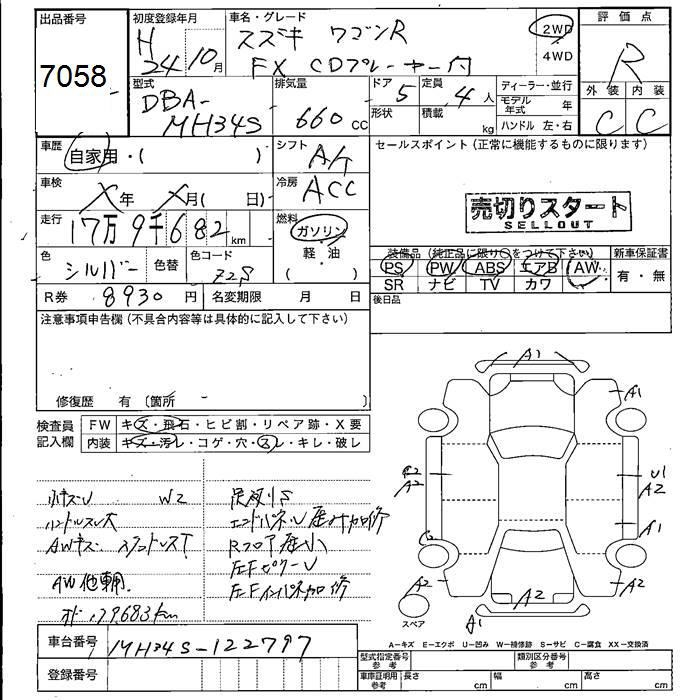 出品番号 初度登録年月 車名・グレード 評価点
7058 H24 10月 スズキ ワゴンR 2WD 4WD R
FX CDプレーヤー付
型式 排気量 ドア 定員 ディーラー・並行 外装 内装
DBA-MH34S 660cc 5 4人 形状 積載 kg モデル年式 年 ハンドル 左・右 C C
車歴 自家用・( ) シフト A/T セールスポイント(正常に機能するものに限ります)
車検 X年 X月( 日) 冷房 ACC
売切りスタート
SELLOUT
走行 17万9千682km 燃料 ガソリン 軽・油
装備品(純正品に限り○をつけて下さい) 新車保証書
PS PW ABS エアB AW 有・無
SR ナビ TV カワ
色 シルバー 色替 色コード Z2S
後日品
R券 8930円 名変期限 月 日
注意事項申告欄(不具合内容等は具体的に記入して下さい)
修復歴 有〔箇所 〕
検査員記入欄 FW キズ・飛石・ヒビ割・リペア跡・X要
内装 キズ・汚レ・コゲ・穴・スレ・キレ・破レ
小キズU W2
ハンドルスレ大 エンドパネル
AWキズ Rフロア 小
AW他車用
車台番号 MH34S-122797
登録番号
A1
A1
U1
A2 A2
A1
A2 A2
A2
A1
スペア
A-キズ E-エクボ U-凹み W-補修跡 S-サビ C-腐食 XX-交換済
型式指定番号 参考 類別区分番号 参考
車庫証明用 参考 長さ cm 幅 cm 高さ cm